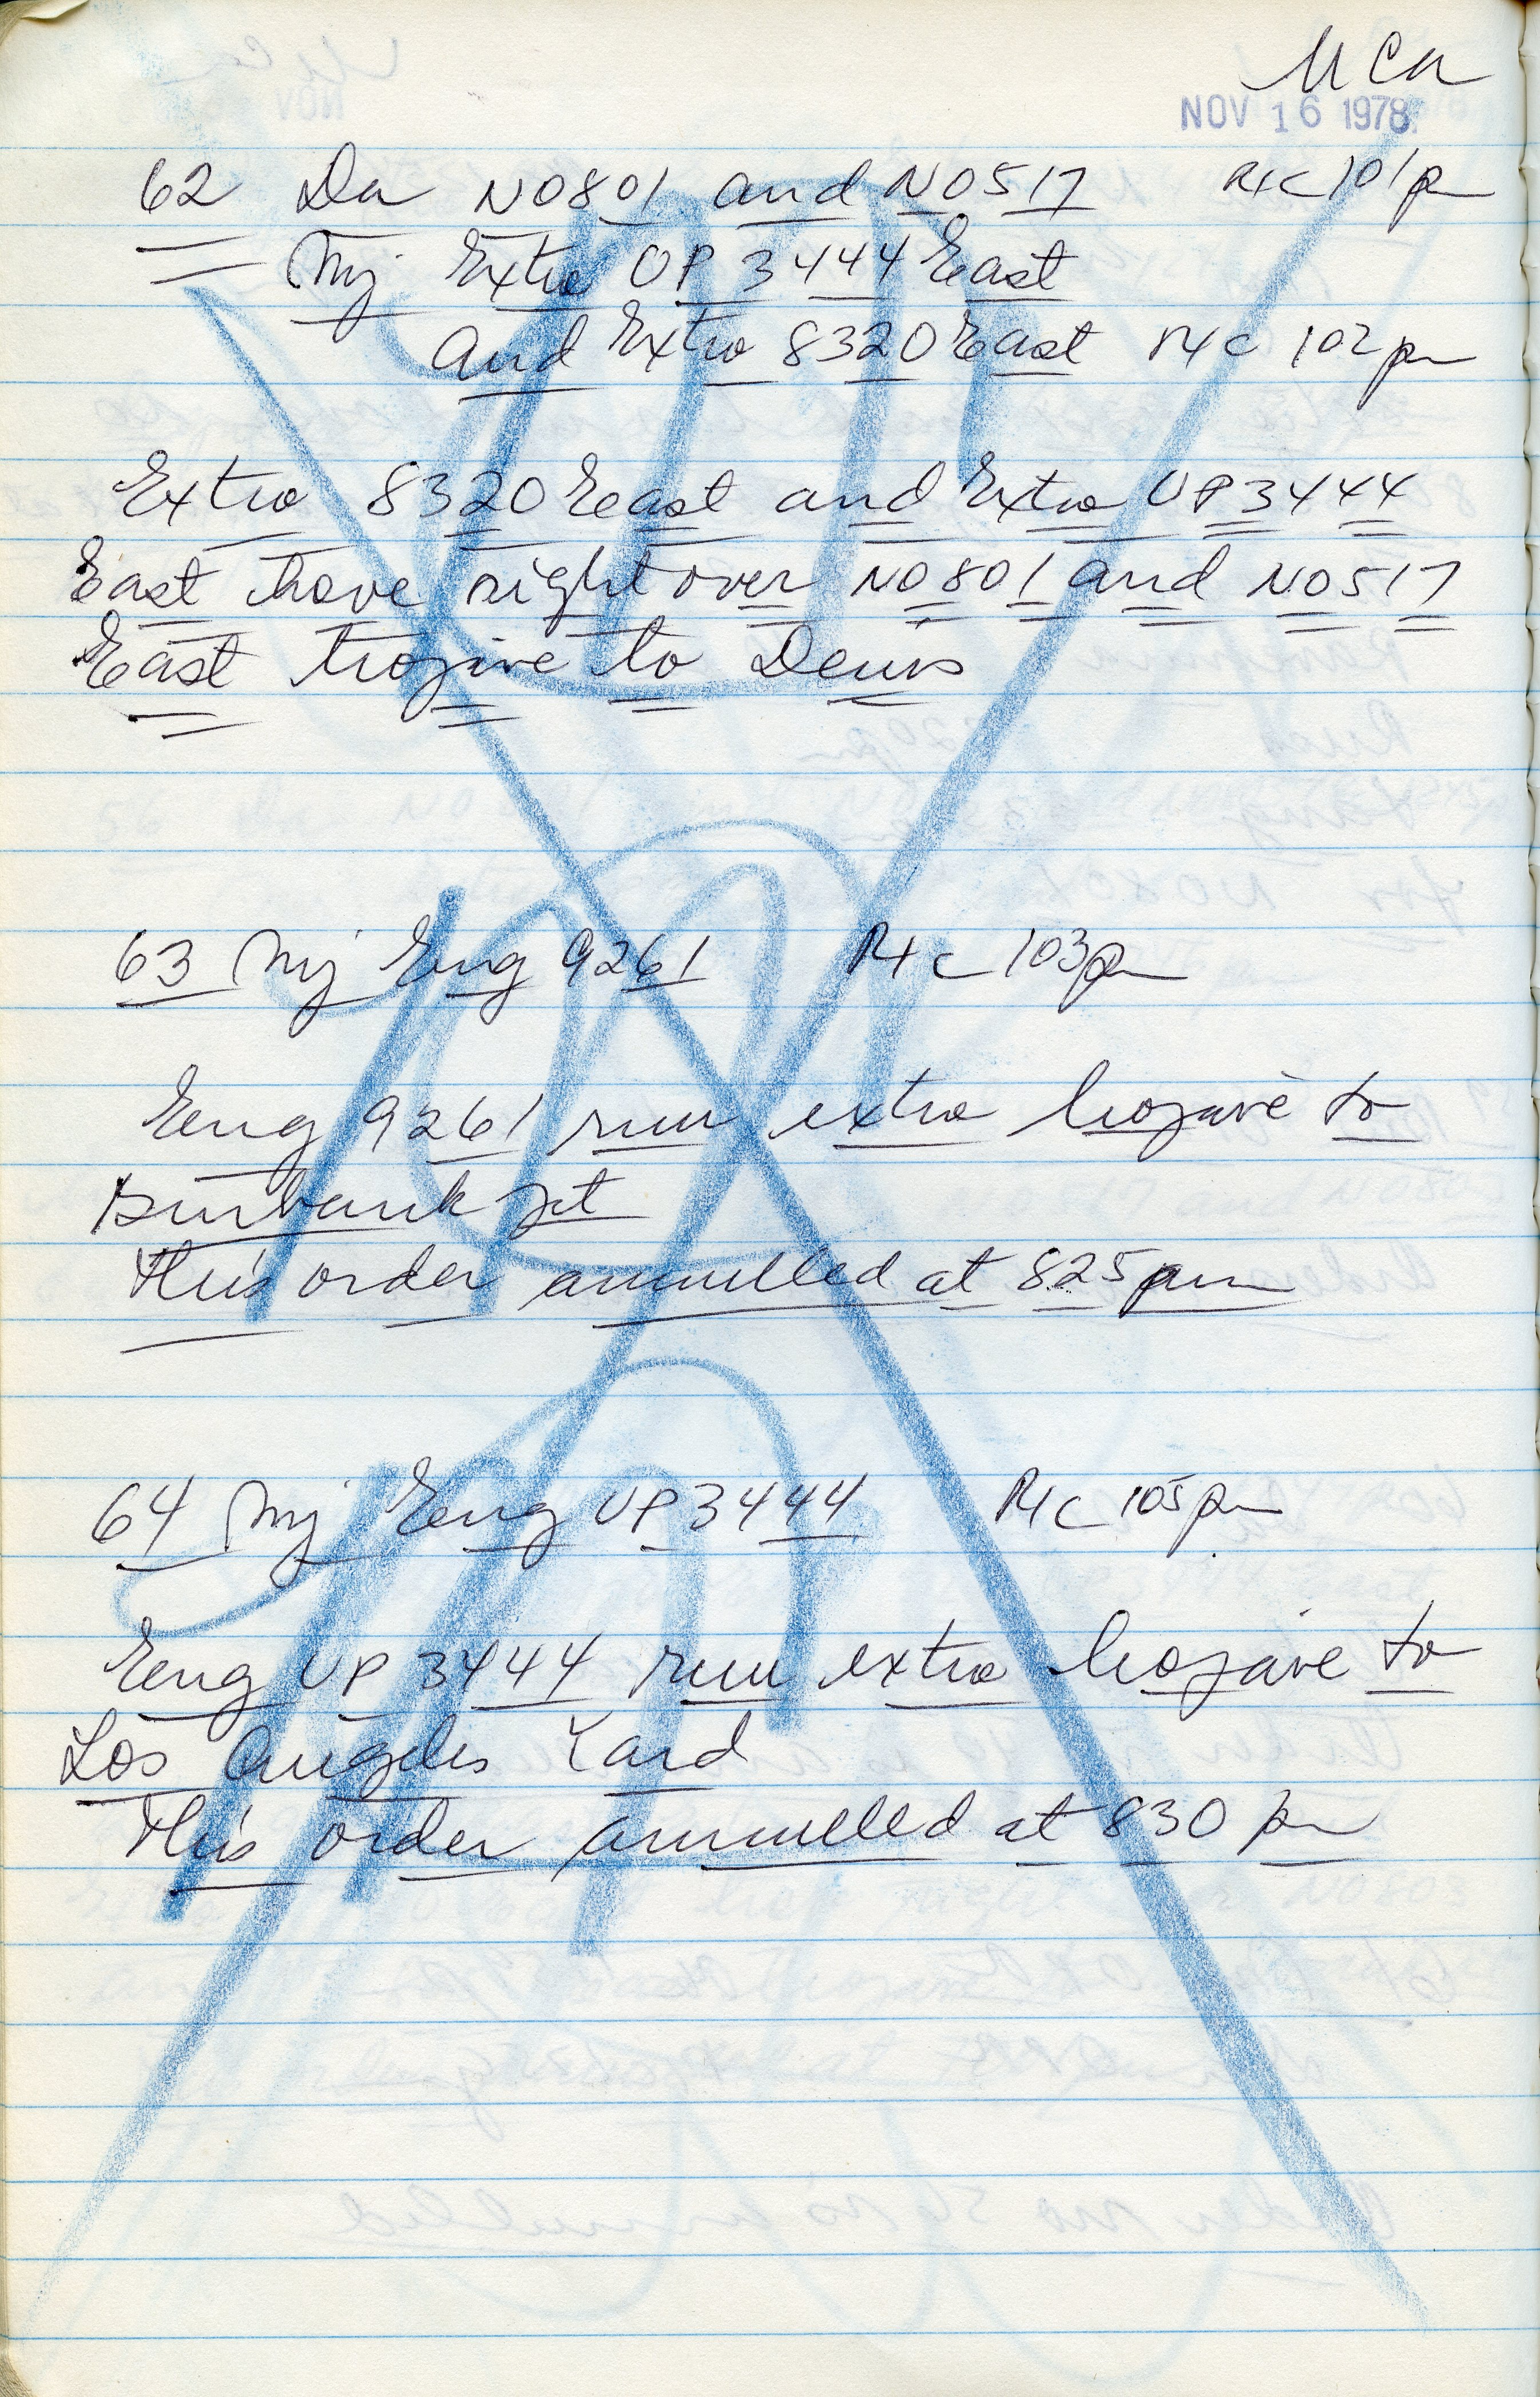 MCA
NOV 16 1978
62 Da No801 and No517 R4C 101 pm
Mj Extra UP 3444 East
and Extra 8320 East R4C 102 pm
Extra 8320 East and Extra UP 3444
East have right over No801 and No517
East Mojave to Denis
63 Mj Eng 9261 R4C 103 pm
Eng 9261 run extra Mojave to
Burbank Jct
This order annulled at 825 pm
64 Mj Eng UP 3444 R4C 105 pm
Eng UP 3444 run extra Mojave to
Los Angeles Yard
This order annulled at 830 pm